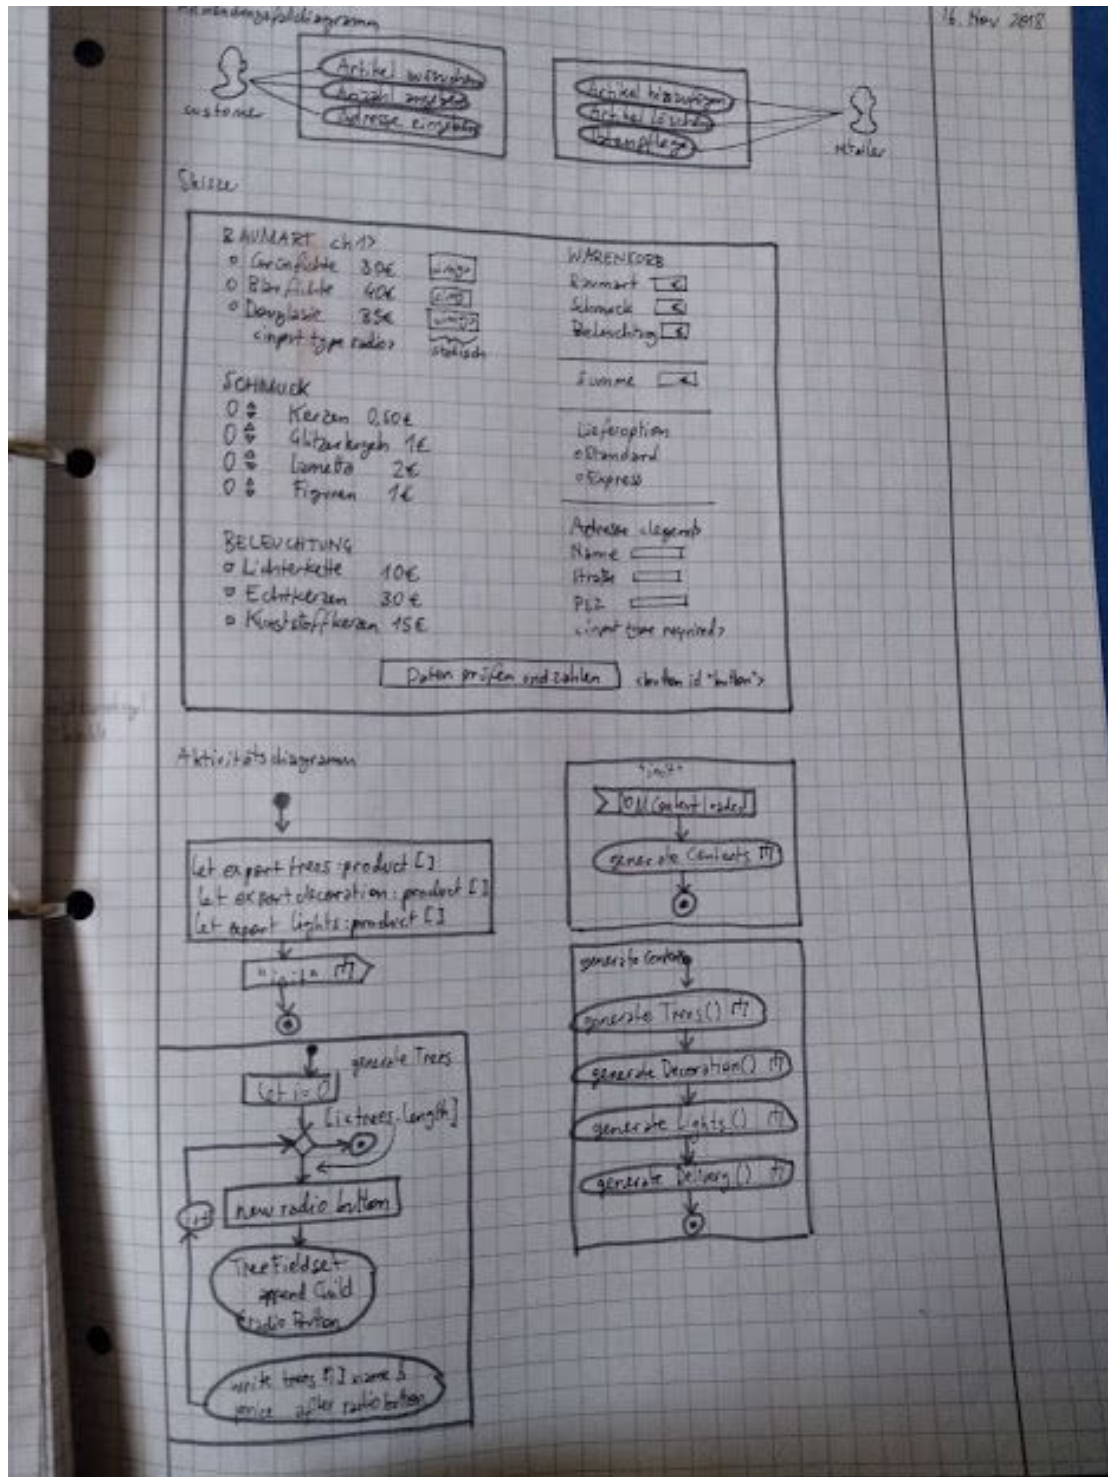 Anwendungsfalldiagramm
16. Nov 2018
Artikel aussuchen
Anzahl angeben
Adresse eingeben
customer
Artikel hinzufügen
Artikel löschen
Datenpflege
retailer
Skizze
BAUMART <h1>
Grünfichte 30€
Blaufichte 40€
Douglasie 35€
<input type radio>
statisch
SCHMUCK
0 Kerzen 0,50€
0 Glitzerkugeln 1€
0 Lametta 2€
0 Figuren 1€
BELEUCHTUNG
Lichterkette 10€
Echtkerzen 30€
Kunststoffkerzen 15€
WARENKORB
Baumart €
Schmuck €
Beleuchtung €
Summe €
Lieferoption
Standard
Express
Adresse <legend>
Name
Straße
PLZ
<input type required>
Daten prüfen und zahlen <button id "button">
Aktivitätsdiagramm
let export trees: product []
let export decoration: product []
let export lights: product []
"init"
generate Trees
let i = 0
[i<trees.length]
new radio button
i++
Tree Fieldset
append Child
radio Button
write trees [i] name &
price after radio button
"init"
DOMContentLoaded
generate Contents
generate Content
generate Trees()
generate Decoration()
generate Lights()
generate Delivery()